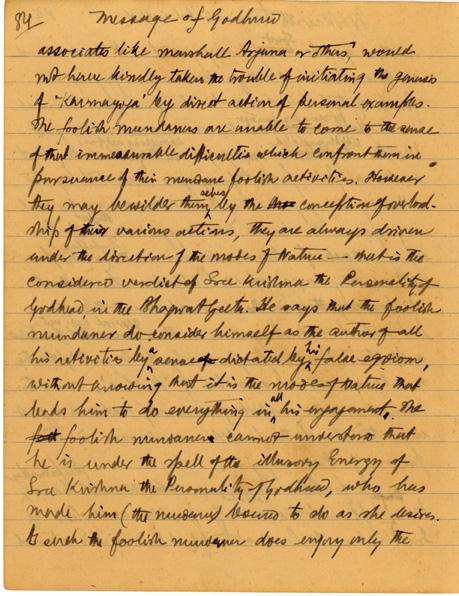 84/ Message of Godhead
associates like marshall Arjuna or others, would
not have kindly taken the trouble of initiating the genesis
of "Karmayoga" by direct action of personal examples.
The foolish mundaners are unable to come to the sense
of that immeasurable difficulties which confront them in
pursuance of their mundane foolish activities. However
they may bewilder themselves by the conception of overlord-
ship of their various actions, they are always driven
under the direction of the modes of Nature - that is the
considered verdict of Sree Krishna the Personality of
Godhead, in the Bhagwat Geeta. He says that the foolish
mundaner do consider himself as the author of all
his activities by a sense dictated by his false egoism,
without knowing that it is the modes of Nature that
leads him to do everything in all his engagement. The
foolish mundaner cannot understand that
he is under the spell of the illusory Energy of
Sree Krishna the Personality of Godhead, who has
made him (the mundaner) bound to do as she desires.
As such the foolish mundaner does enjoy only the